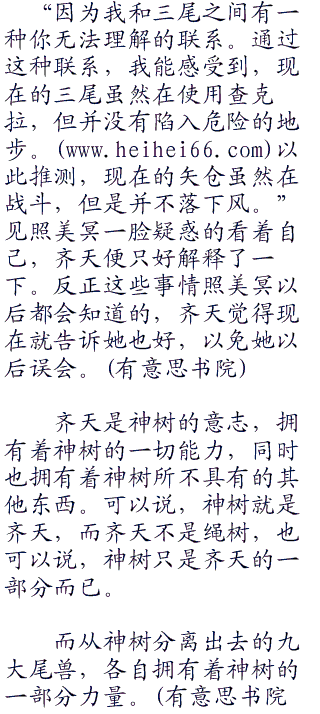 “因为我和三尾之间有一
种你无法理解的联系。通过
这种联系，我能感受到，现
在的三尾虽然在使用查克
拉，但并没有陷入危险的地
步。(www.heihei66.com)以
此推测，现在的矢仓虽然在
战斗，但是并不落下风。”
见照美冥一脸疑惑的看着自
己，齐天便只好解释了一
下。反正这些事情照美冥以
后都会知道的，齐天觉得现
在就告诉她也好，以免她以
后误会。(有意思书院)
齐天是神树的意志，拥
有着神树的一切能力，同时
也拥有着神树所不具有的其
他东西。可以说，神树就是
齐天，而齐天不是绳树，也
可以说，神树只是齐天的一
部分而已。
而从神树分离出去的九
大尾兽，各自拥有着神树的
一部分力量。(有意思书院